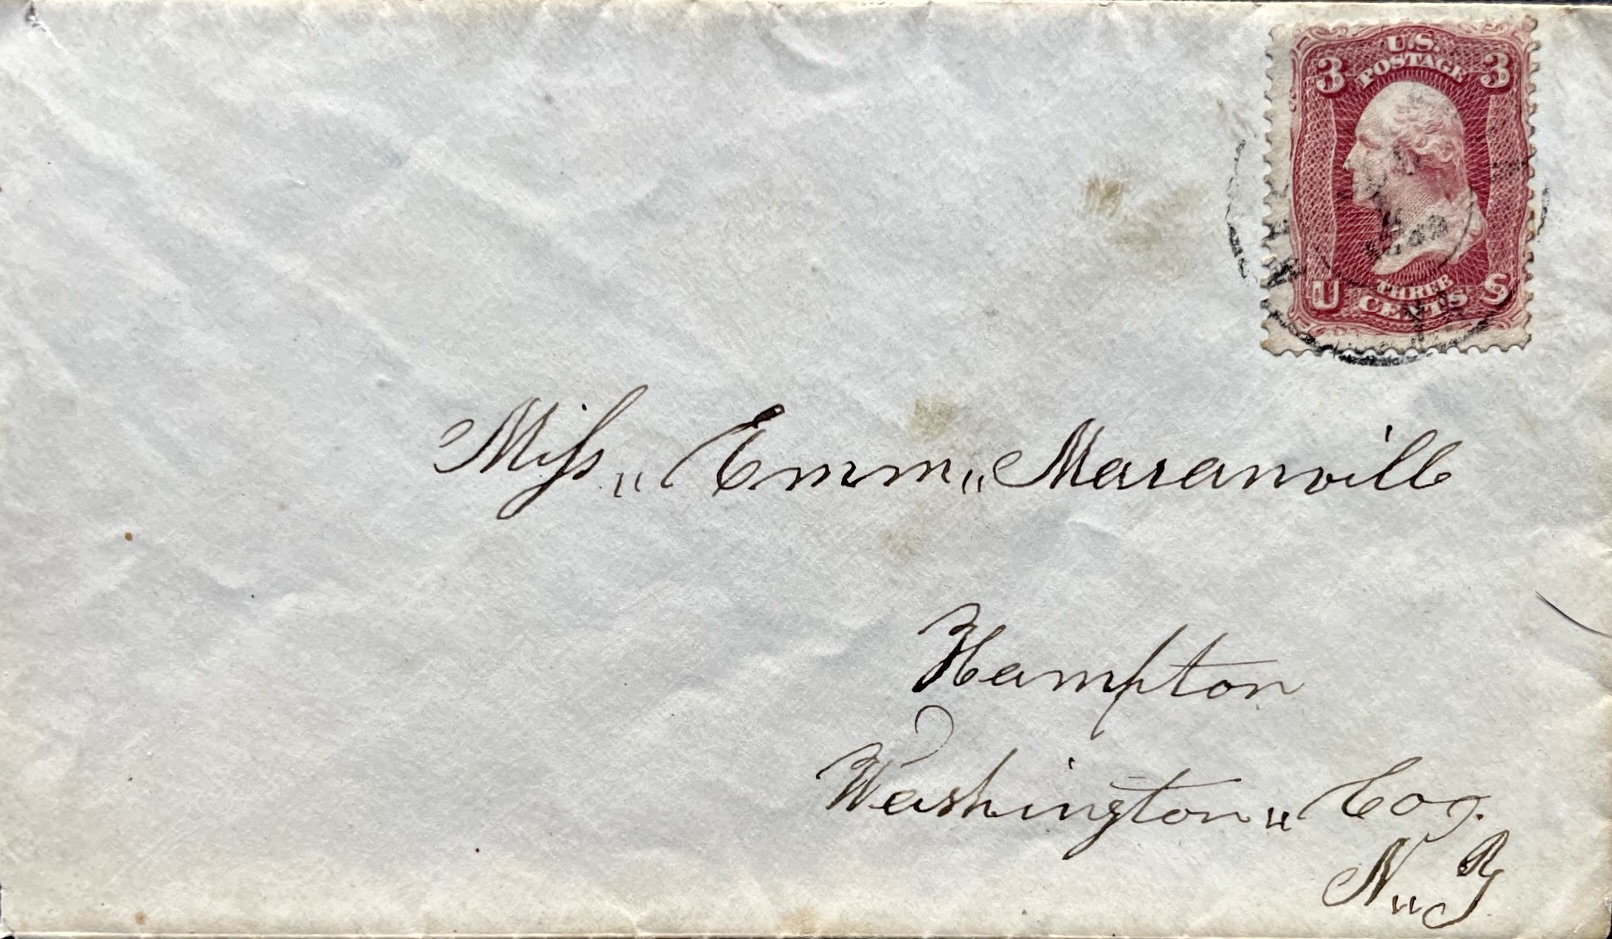 U.S.
POSTAGE
3 3
U S
THREE
CENTS
Miss „ Emm „ Maranvill
Hampton
Washington „ Co.
N „ Y